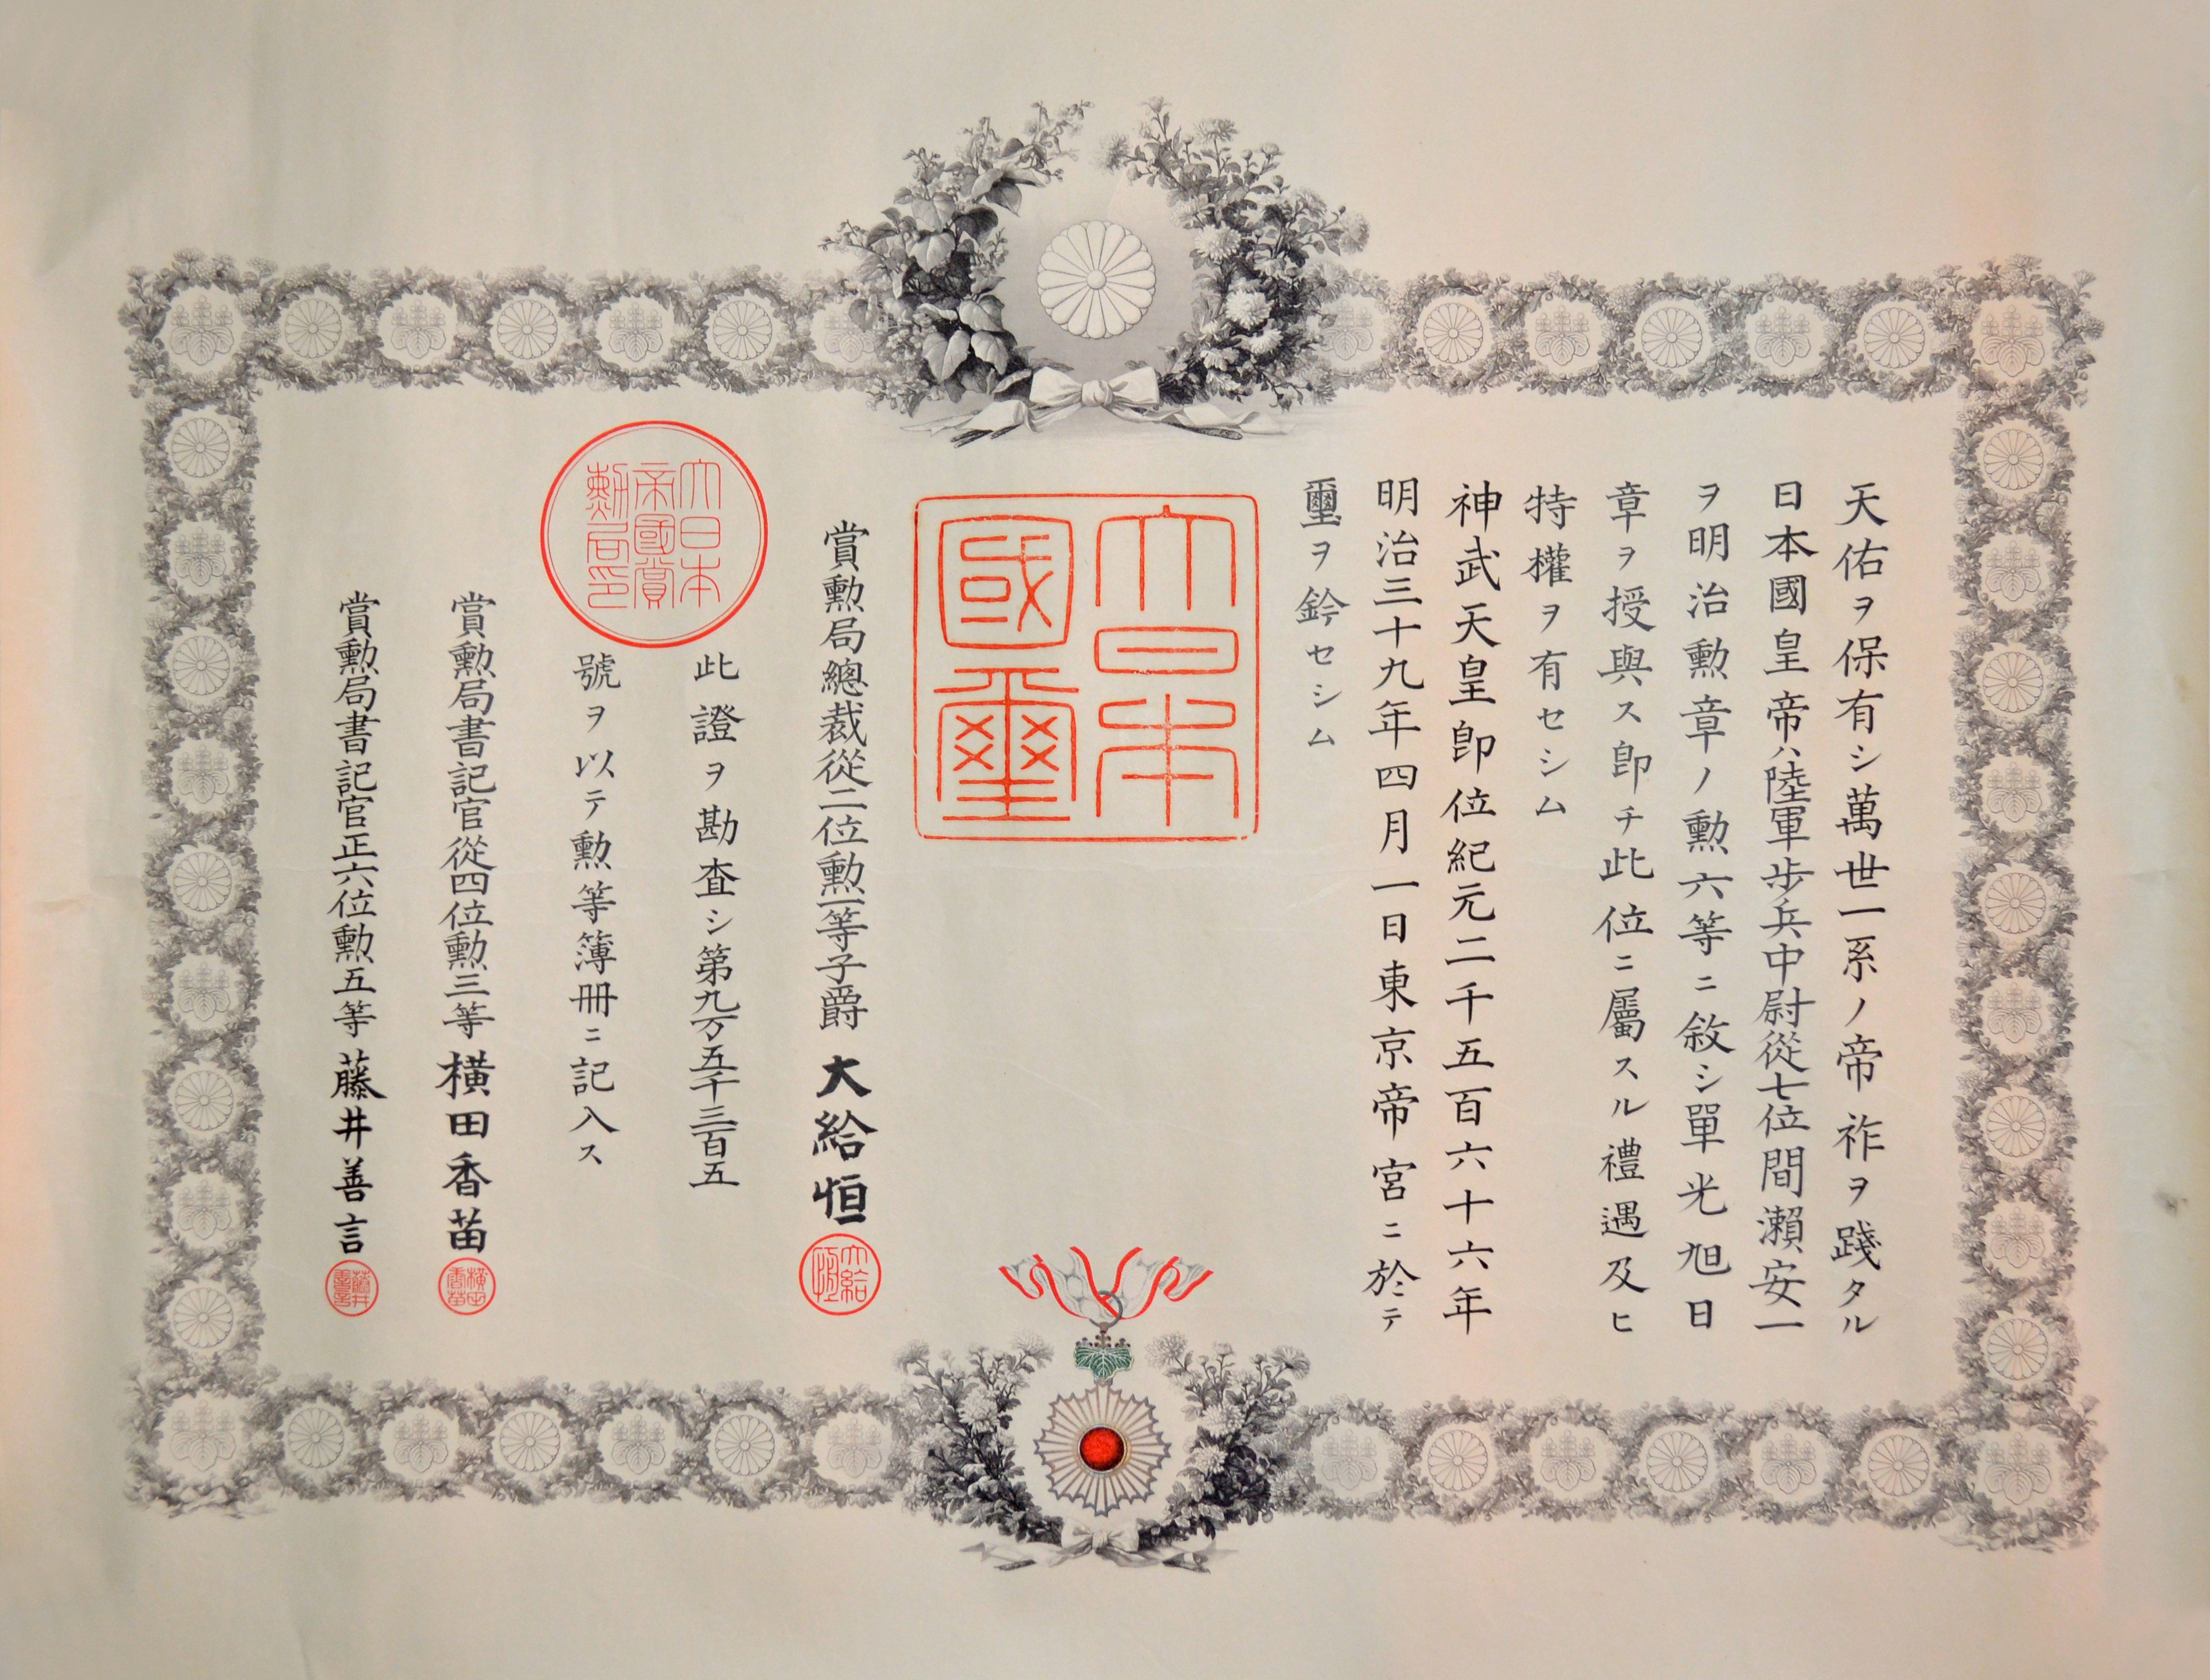 天佑ヲ保有シ萬世一系ノ帝祚ヲ踐タル
日本國皇帝ハ陸軍歩兵中尉從七位間瀬安一
ヲ明治勲章ノ勲六等ニ敘シ單光旭日
章ヲ授與ス卽チ此位ニ屬スル禮遇及ヒ
特權ヲ有セシム
神武天皇卽位紀元二千五百六十六年
明治三十九年四月一日東京帝宮ニ於テ
璽ヲ鈐セシム
大日本
國璽
賞勲局總裁從二位勲一等子爵 大給恒
大給
恒
此證ヲ勘査シ第九万五千三百五
號ヲ以テ勲等簿冊ニ記入ス
大日本
帝國賞
勲局印
賞勲局書記官從四位勲三等 横田香苗
横田
香苗
賞勲局書記官正六位勲五等 藤井善言
藤井
善言